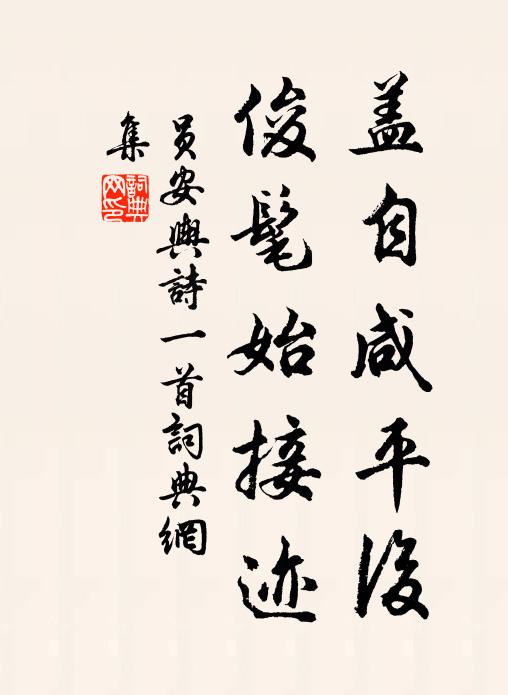 盖自咸平後
俊髦始接迹
员安輿詩一首詞典網
集
詞典网印